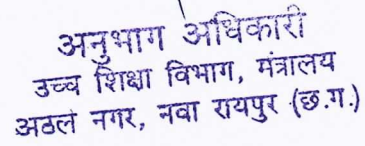 अनुभाग अधिकारी
उच्च शिक्षा विभाग, मंत्रालय
अठल नगर, नवा रायपुर (छ.ग.)